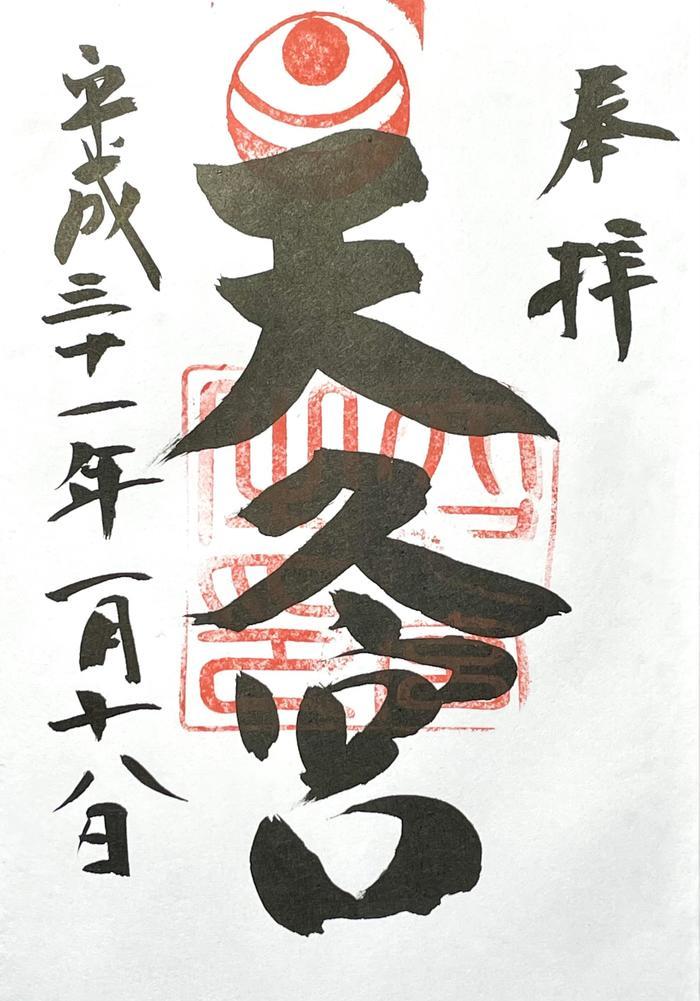 奉拝
天久宮
平成三十一年一月十八日